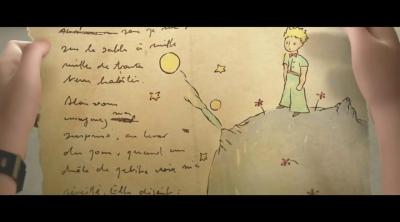 sur le sable à mille
mille de toute
terre habitée.
Alors vous
imaginez ma
surprise, au lever
du jour, quand un
drôle de petite voix m'a
réveillé. Elle disait :